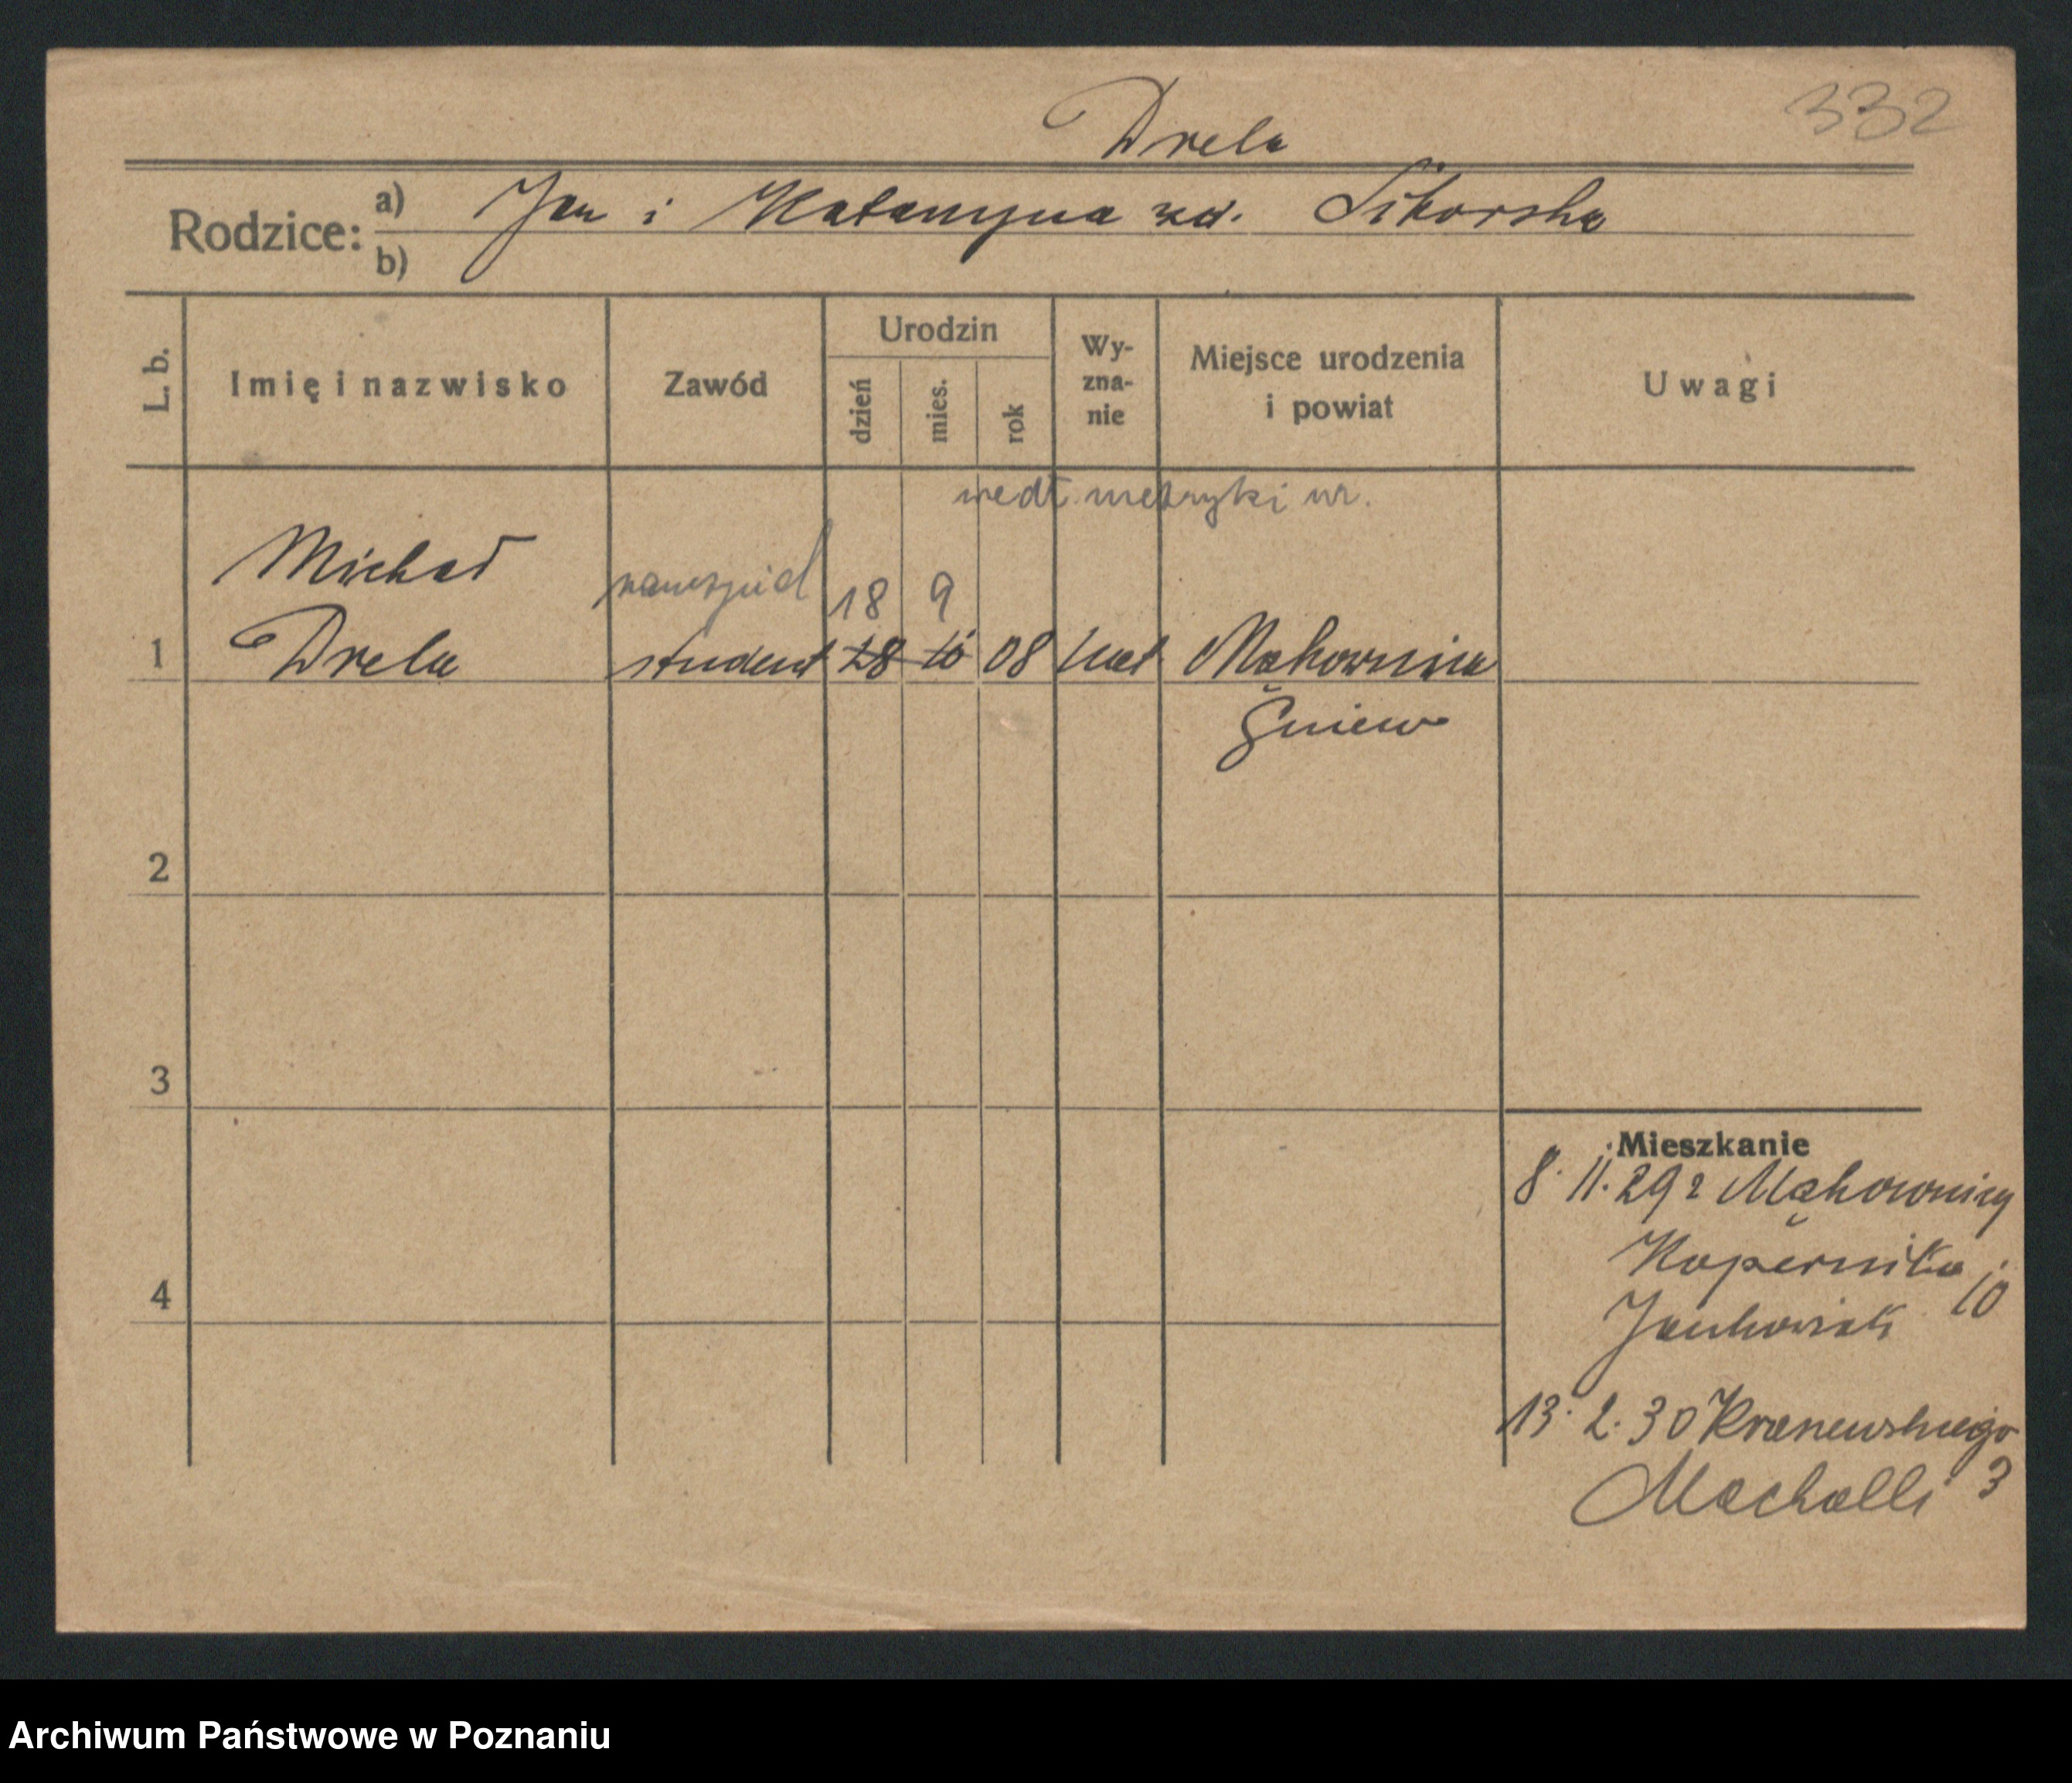 332
Drela
Rodzice: a) Jan i Katarzyna zd. Sikorska
b)
L. b. Imię i nazwisko Zawód Urodzin dzień mies. rok Wy-zna-nie Miejsce urodzenia i powiat Uwagi
wedł. metryki ur.
Michał
18 9
1 Drela student 28 10 08 kat Mąkownica
Gniew
2
3
Mieszkanie
8. 11. 29 z Mąkownicy
Kopernika 10
4
Jankowiak
13. 2. 30
3
Archiwum Państwowe w Poznaniu